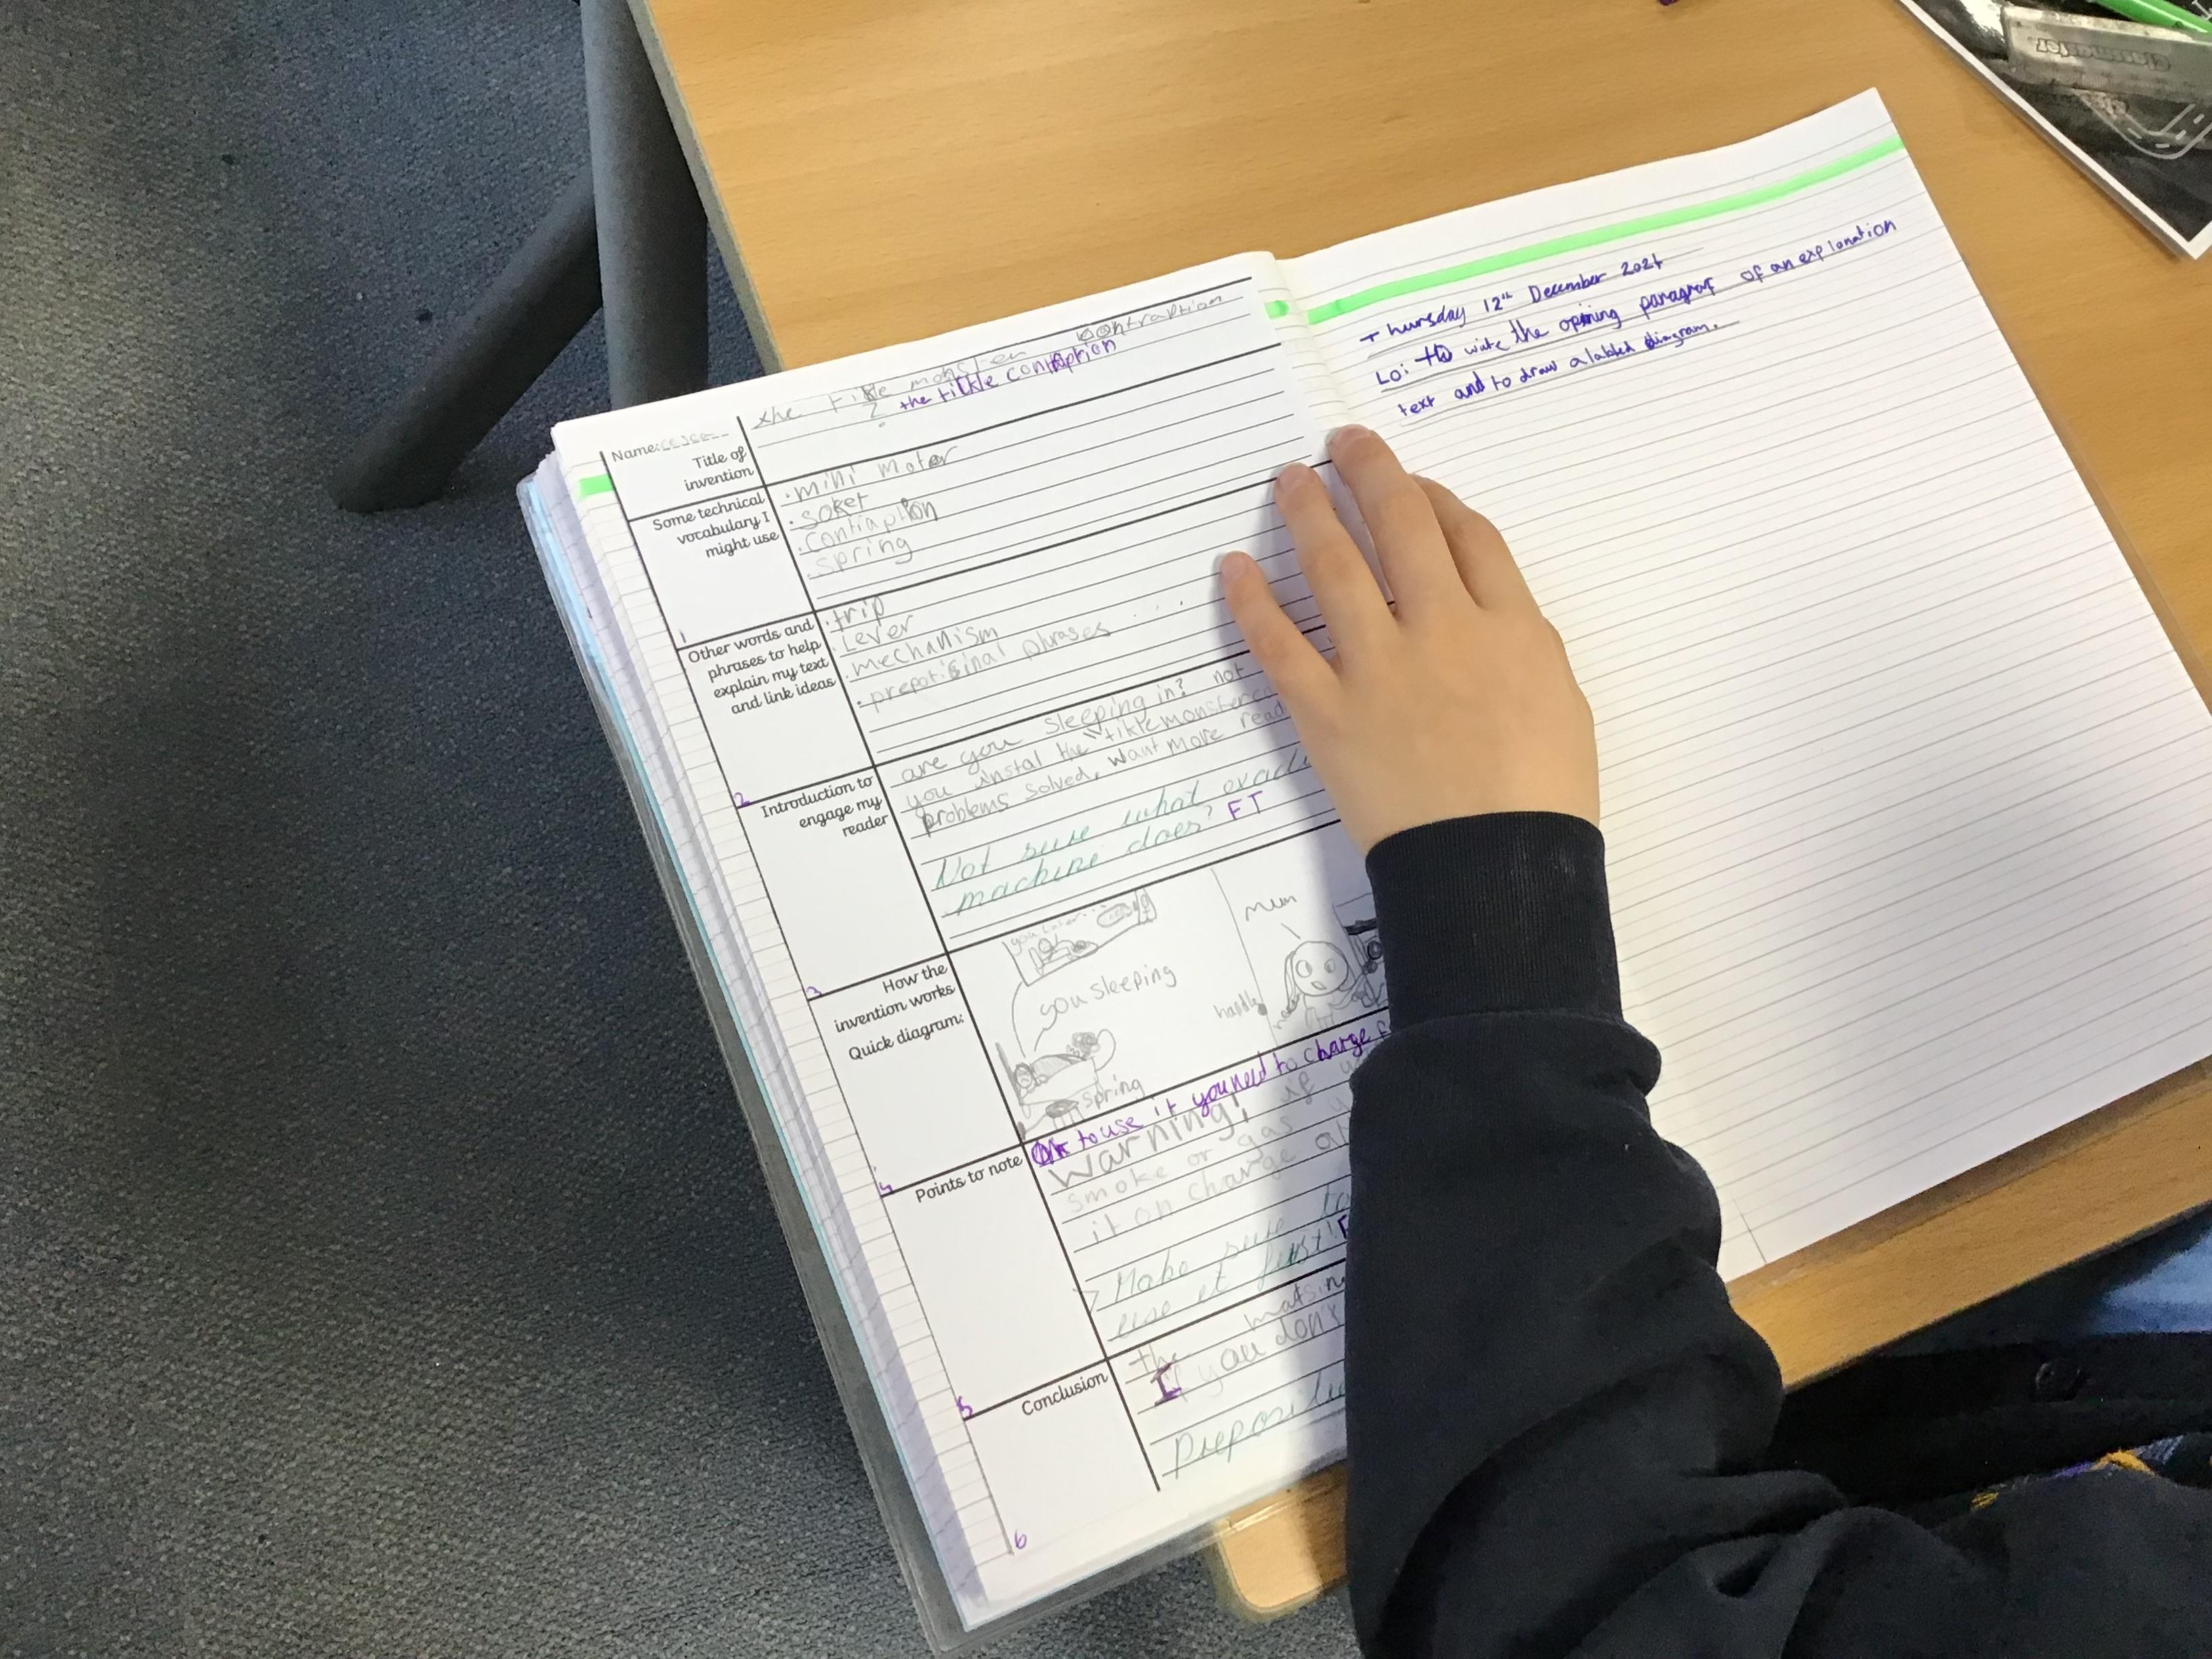 Name:
Title of
invention
the tikle monster contraption
? the tickle contraption
Some technical
vocabulary I
might use
. mini moter
. soket
. contraption
. spring
1
Other words and
phrases to help
explain my text
and link ideas
. trip
. Lever
. mechanism
. prepotisinal phrases . . .
2
Introduction to
engage my
reader
are you sleeping in? not
you instal the "tikle monster
problems solved, want more
Not sure what
machine does? FT
3
How the
invention works
Quick diagram:
you later...
you sleeping
spring
Mum
handle
4
Points to note
to use it you need to charge
warning! if
smoke or gas
it on charge
Make sure
use it first!
5
Conclusion
the
If you don't
6
Thursday 12th December 2024
LO: to write the opening paragraf of an explanation
text and to draw a labled diagram.
Classmaster